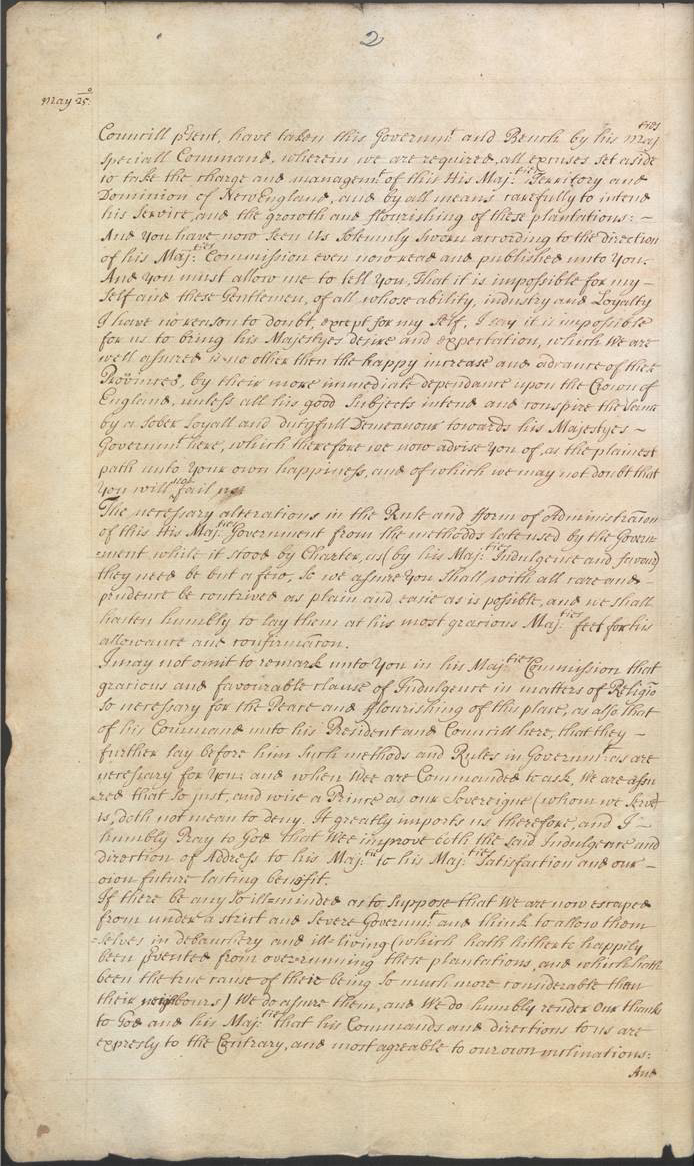 2
May 25.º
Councill p̱sent, have taken this Governm.ᵗ and Bench by his Maj.ᵗⁱᵉˢ
speciall Command, wherein we are required, all excuses set aside
to take the charge and managem.ᵗ of this His Maj.ᵗⁱᵉˢ Territory and
Dominion of New England, and by all means carefully to intend
his Service, and the growth and flourishing of these plantations: –
And you have now seen Us Solemnly Sworn according to the direction
of his Maj.ᵗⁱᵉˢ Commission even now read and published unto You.
And you must allow me to tell you, That it is impossible for my –
Self and these Gentlemen, of all whose ability, industry and Loyalty
I have no reason to doubt, except for my Self, I say it is impossible
for us to bring his Majestyes desire and expectation, which We are
well assured is no other then the happy increase and advance of these
Provinces, by their more immediate dependance upon the Crown of
England, unless all his good Subjects intend and conspire the same
by a Sober Loyall and dutyfull Demeanour towards his Majestyes –
Governm.ᵗ here, which therefore we now advise You of, as the plainest
path unto Your own happiness, and of which we may not doubt that
You will not fail
The necessary alterations in the Rule and fform of Administracon
of this His Maj.ᵗⁱᵉˢ Government from the methodds late used by the Govern=
=ment while it stood by Charter, as (by his Maj.ᵗⁱᵉˢ Indulgence and favour)
they need be but a few, So we assure You Shall with all care and –
prudence be contrived as plain and easie as is possible, and we shall
hasten humbly to lay them at his most gracious Maj.ᵗⁱᵉˢ feet for his
allowance and confirmacon.
I may not omit to remark unto You in his Maj.ᵗⁱᵉˢ Commission that
gracious and favourable clause of Indulgence in matters of Religio
So necessary for the Peace and fflourishing of this place, as also that
of his Command unto his President and Councill here, that they –
further lay before him Such methods and Rules in Governm.ᵗ as are
necessary for You: and when Wee are Commanded to ask, We are assu
=red that So just, and wise a Prince as our Sovereigne (whom we Serve)
is, doth not mean to deny. It greatly imports us therefore, and I –
humbly Pray to God that Wee improve both the said Indulgence and
direction of Address to his Maj.ᵗⁱᵉ to his Maj.ᵗⁱᵉˢ Satisfaction and our –
own future lasting benefit.
If there be any So ill=minded as to Suppose that We are now escaped
from under a strict and Severe Governm.ᵗ and think to allow them
=selves in debauchery and ill=living (which hath hitherto happily
been p̱vented from over=running these plantations, and which hath
been the true cause of their being So much more considerable than
their neighbours) We do assure them, and We do humbly render Our thanks
to God and his Maj.ᵗⁱᵉ that his Commands and directions to us are
expresly to the Contrary, and most agreable to our own inclinations:
And